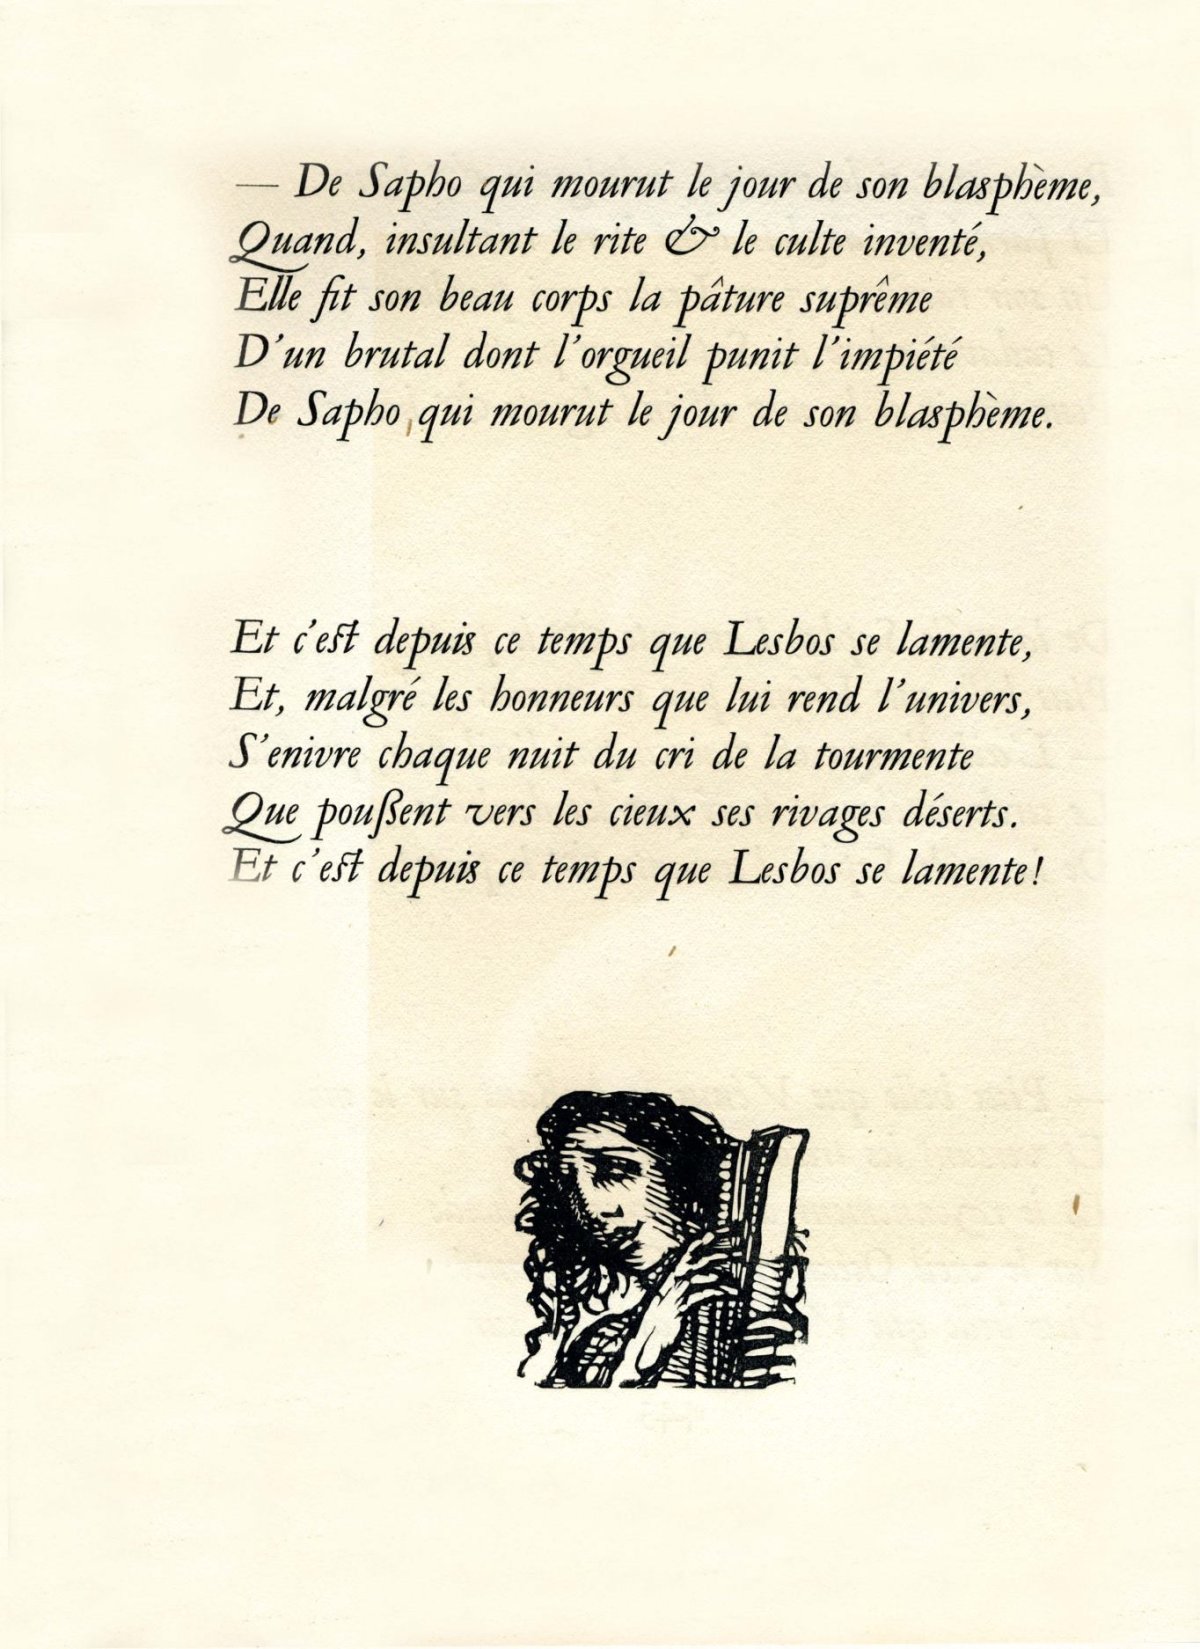 — De Sapho qui mourut le jour de son blasphème,
Quand, insultant le rite & le culte inventé,
Elle fit son beau corps la pâture suprême
D'un brutal dont l'orgueil punit l'impiété
De Sapho qui mourut le jour de son blasphème.
Et c'est depuis ce temps que Lesbos se lamente,
Et, malgré les honneurs que lui rend l'univers,
S'enivre chaque nuit du cri de la tourmente
Que poußent vers les cieux ses rivages déserts.
Et c'est depuis ce temps que Lesbos se lamente!